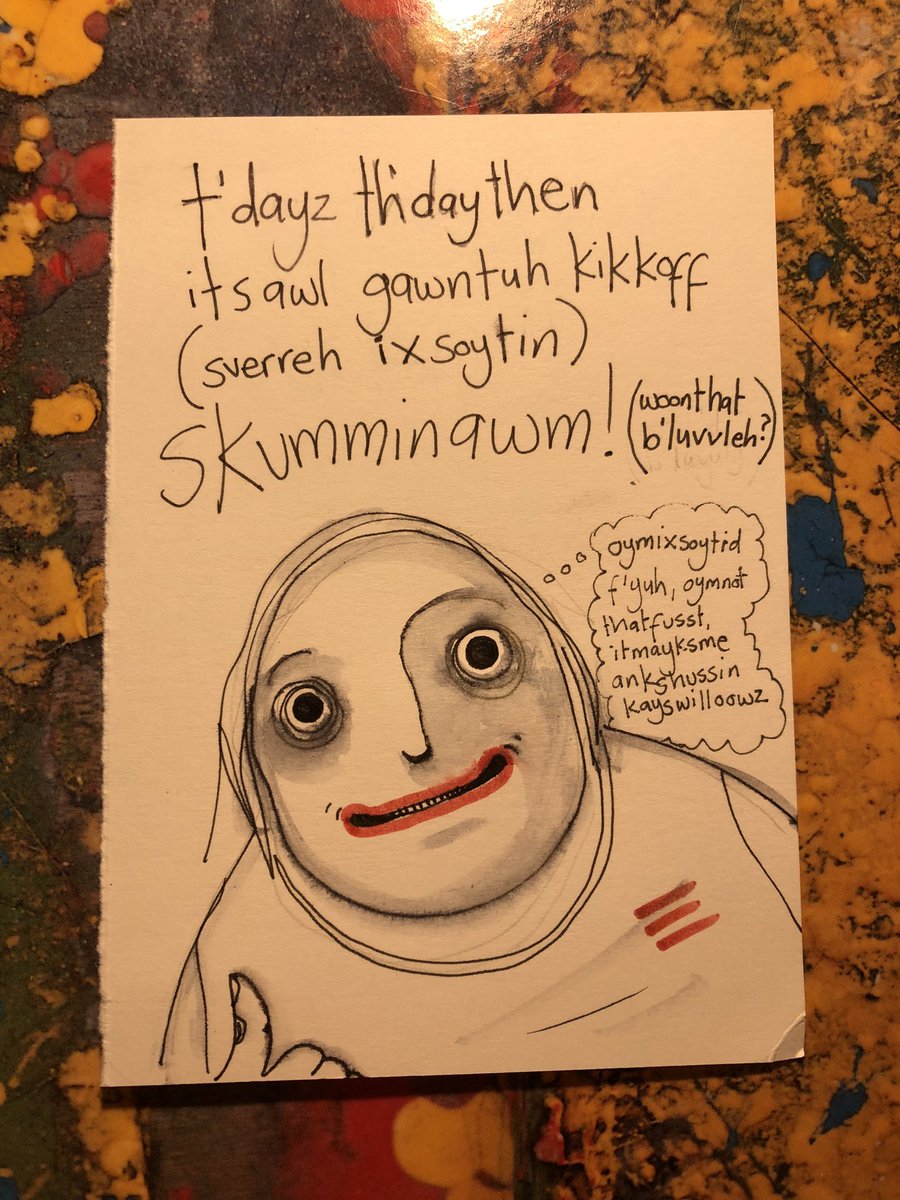 t'dayz th'day then
itsawl gawntuh kikkoff
(sverreh ixsoytin)
skumminawm!
(woonthat
b'luvvleh?)
oymixsoytid
f'yuh, oymnot
thatfusst,
itmayksme
ankshussin
kayswilloowz